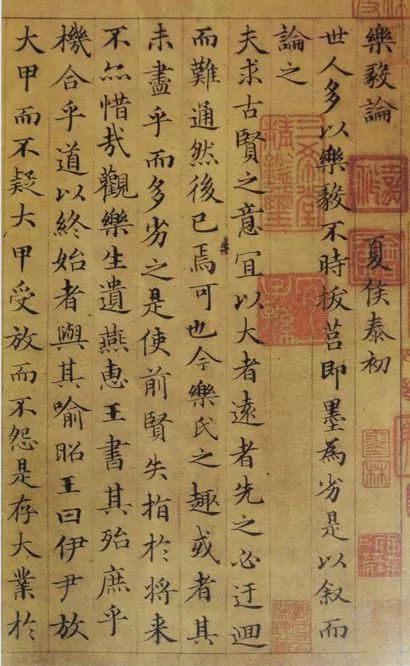 樂毅論 夏侯泰初
世人多以樂毅不時拔莒即墨為劣是以叙而
論之
夫求古賢之意冝以大者遠者先之必迂迴
而難通然後已焉可也今樂氏之趣或者其
未盡乎而多劣之是使前賢失指於將来
不亦惜哉觀樂生遺燕惠王書其殆庶乎
機合乎道以終始者與其喻昭王曰伊尹放
大甲而不疑大甲受放而不怨是存大業於
三希堂精鑑璽
宜子孫